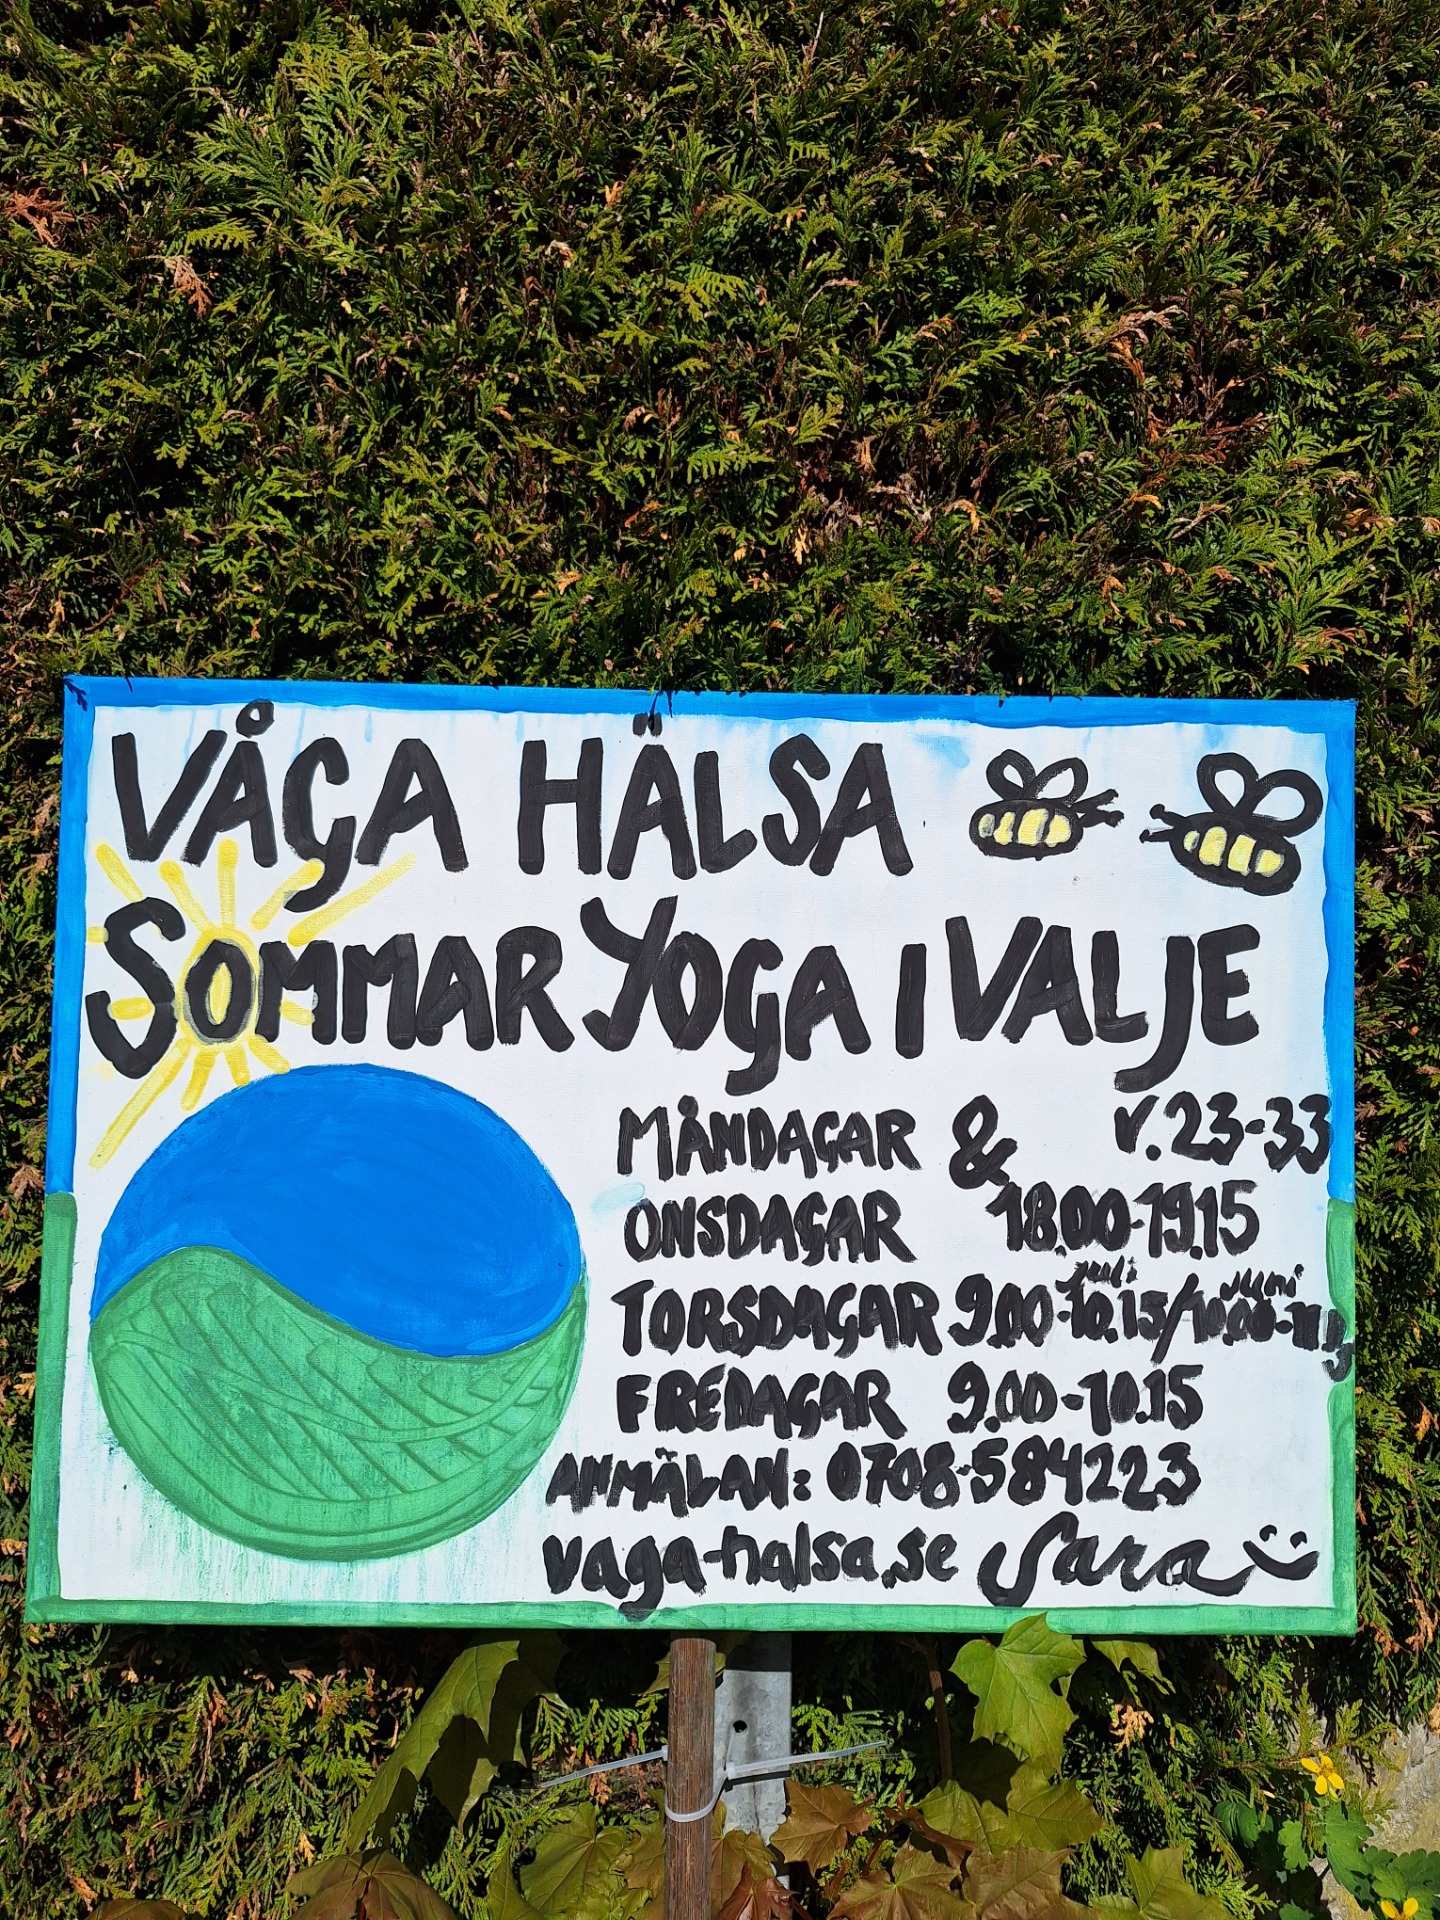 VÅGA HÄLSA
SOMMAR YOGA I VALJE
MÅNDAGAR & v. 23-33
ONSDAGAR 18.00-19.15
juli juni
TORSDAGAR 9.00-10.15/10.00-11.15
FREDAGAR 9.00-10.15
ANMÄLAN: 0708-584223
vaga-halsa.se Sara